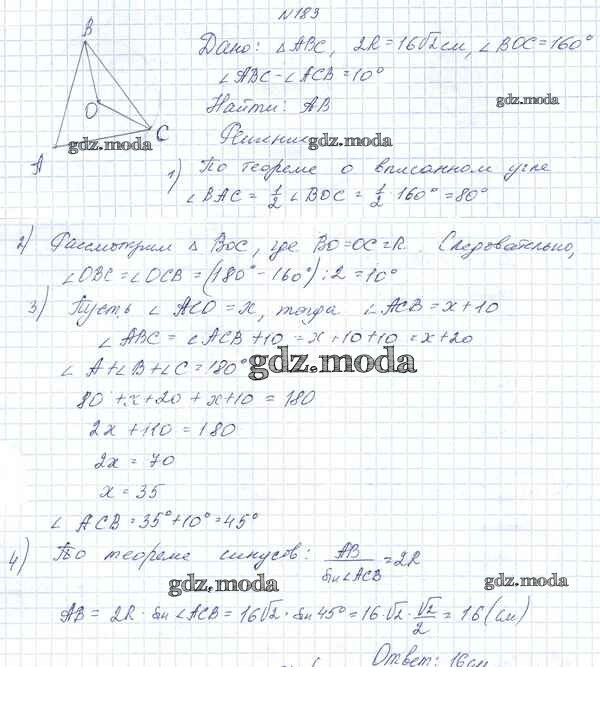 №183
B
O
A
C
Дано: △ABC, 2R=16√2 см, ∠BOC=160°
∠ABC-∠ACB=10°
Найти: AB
gdz.moda
Решение
gdz.moda
gdz.moda
1) По теореме о вписанном угле
∠BAC = 1/2 ∠BOC = 1/2 · 160° = 80°
2) Рассмотрим △ BOC, где BO=OC=R. Следовательно,
∠OBC=∠OCB=(180°-160°):2=10°
3) Пусть ∠ ACO = x, тогда ∠ACB=x+10
∠ABC = ∠ACB+10 = x+10+10 = x+20
∠A+∠B+∠C=180°
gdz.moda
80+x+20+x+10=180
2x+110=180
2x=70
x=35
∠ACB=35°+10°=45°
4) По теореме синусов: AB/sin∠ACB=2R
gdz.moda
gdz.moda
AB = 2R · sin∠ACB = 16√2 · sin 45° = 16·√2 · √2/2 = 16 (см)
Ответ: 16см